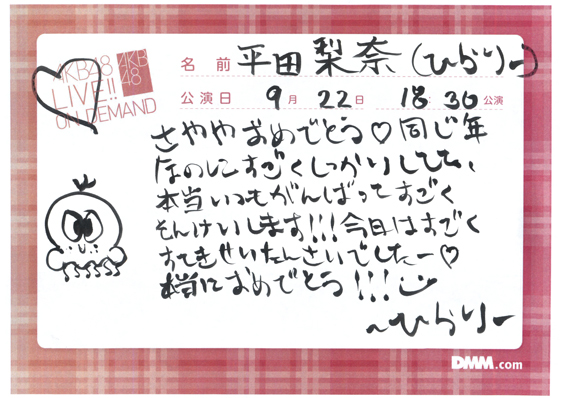 AKB48
LIVE!!
ON DEMAND
AKB
48
名前 平田梨奈(ひらりー)
公演日 9月22日 18:30公演
さややおめでとう♡同じ年
なのにすごくしっかりしてて、
本当いつもがんばってすごく
そんけいします!!!今日はすごく
すてきせいたんさいでしたー♡
本当におめでとう!!!
~ひらりー
DMM.com